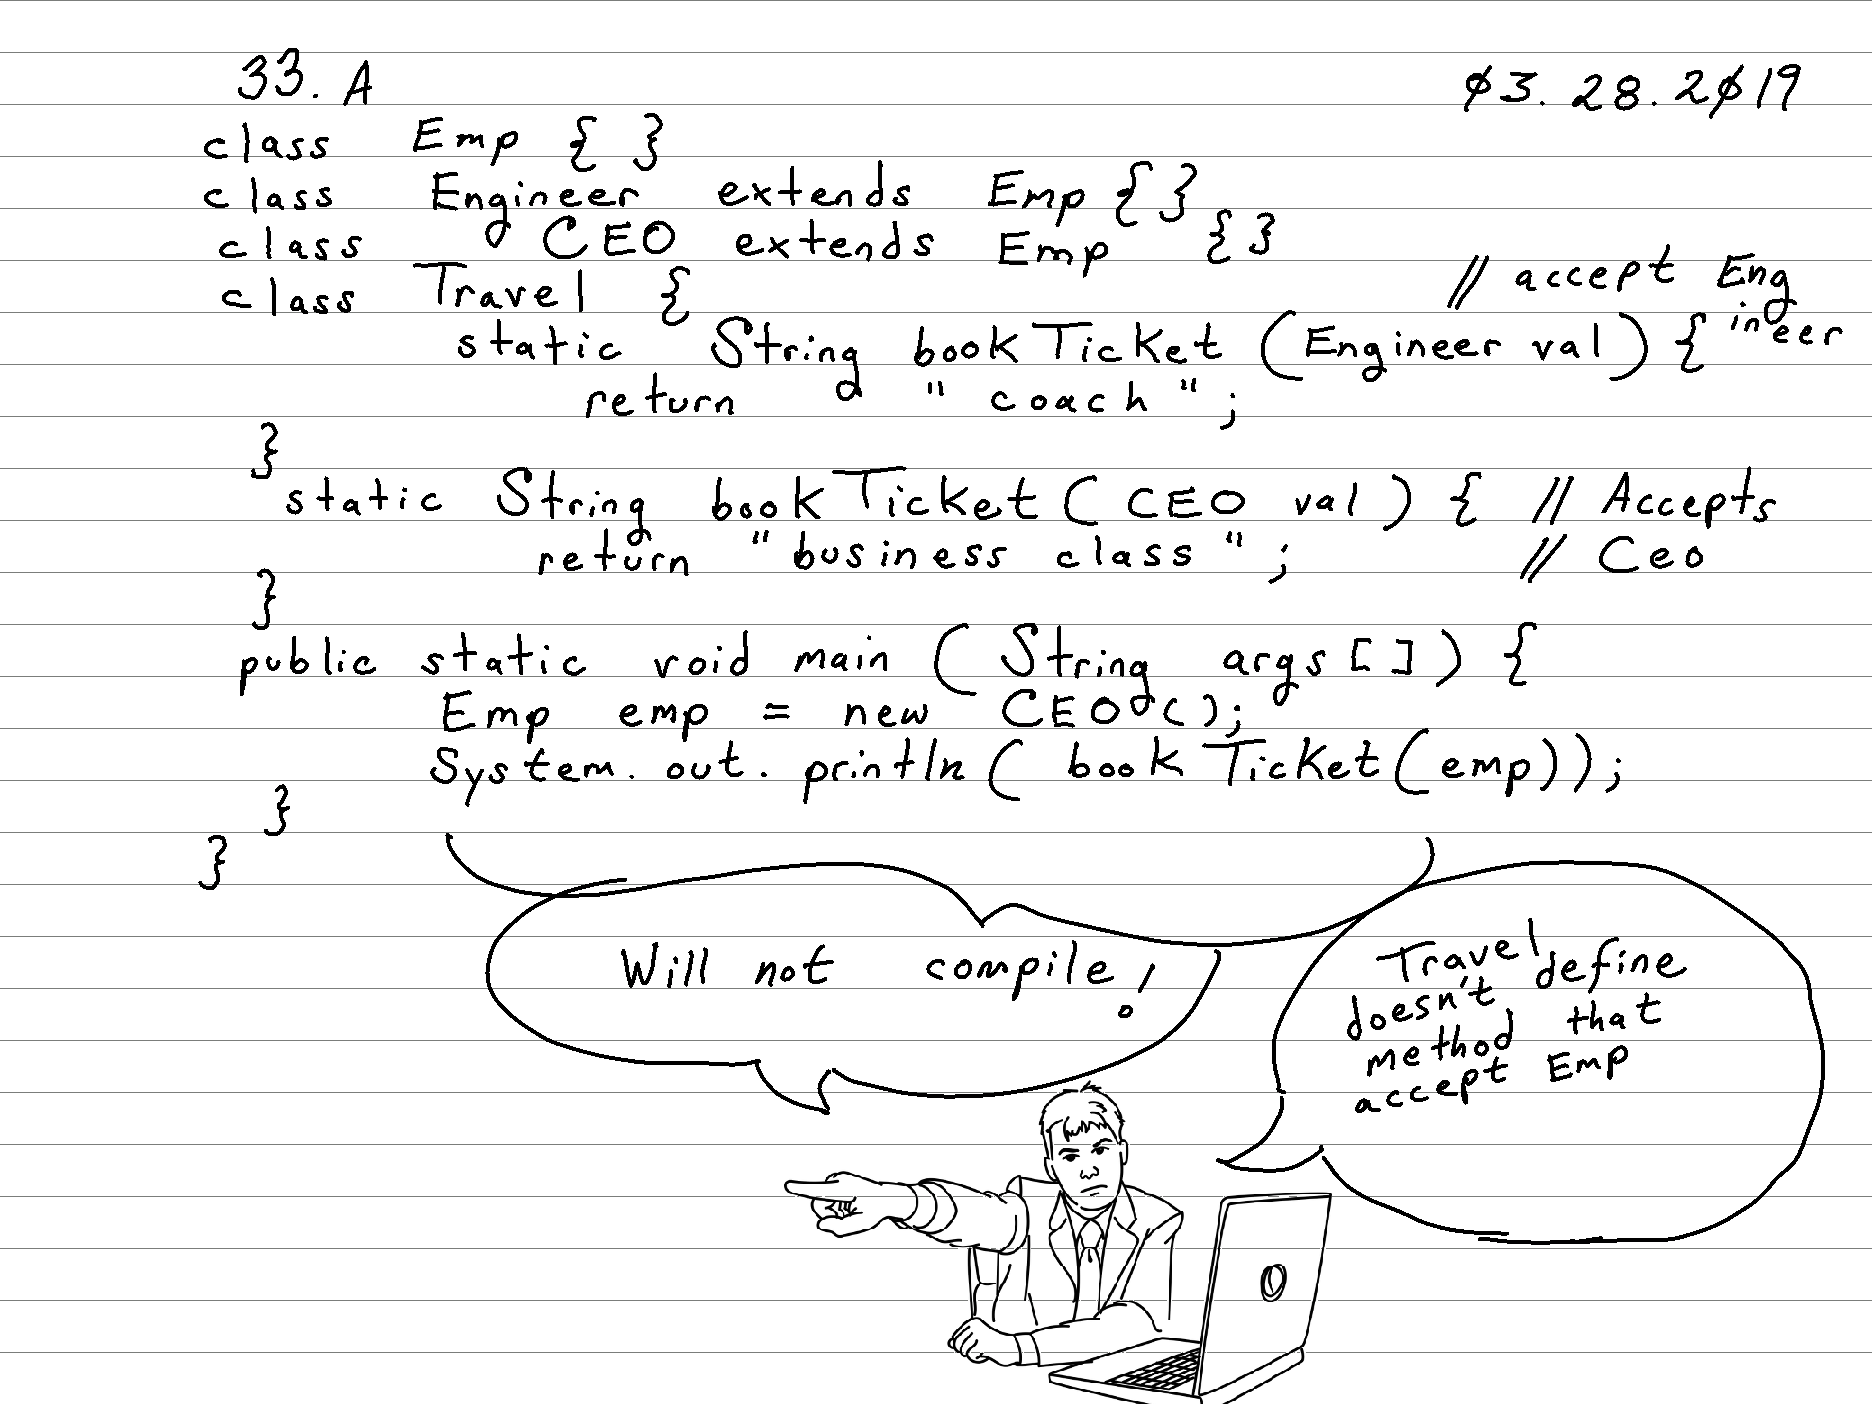 33. A
03. 28. 2019
class Emp { }
class Engineer extends Emp { }
class CEO extends Emp { }
class Travel { // accept Eng
ineer
static String bookTicket (Engineer val) {
return "coach";
}
static String bookTicket (CEO val) { // Accepts
return "business class"; // Ceo
}
public static void main (String args []) {
Emp emp = new CEO();
System.out.println( bookTicket(emp));
}
}
Will not compile!
Travel
doesn't define
method that
accept Emp